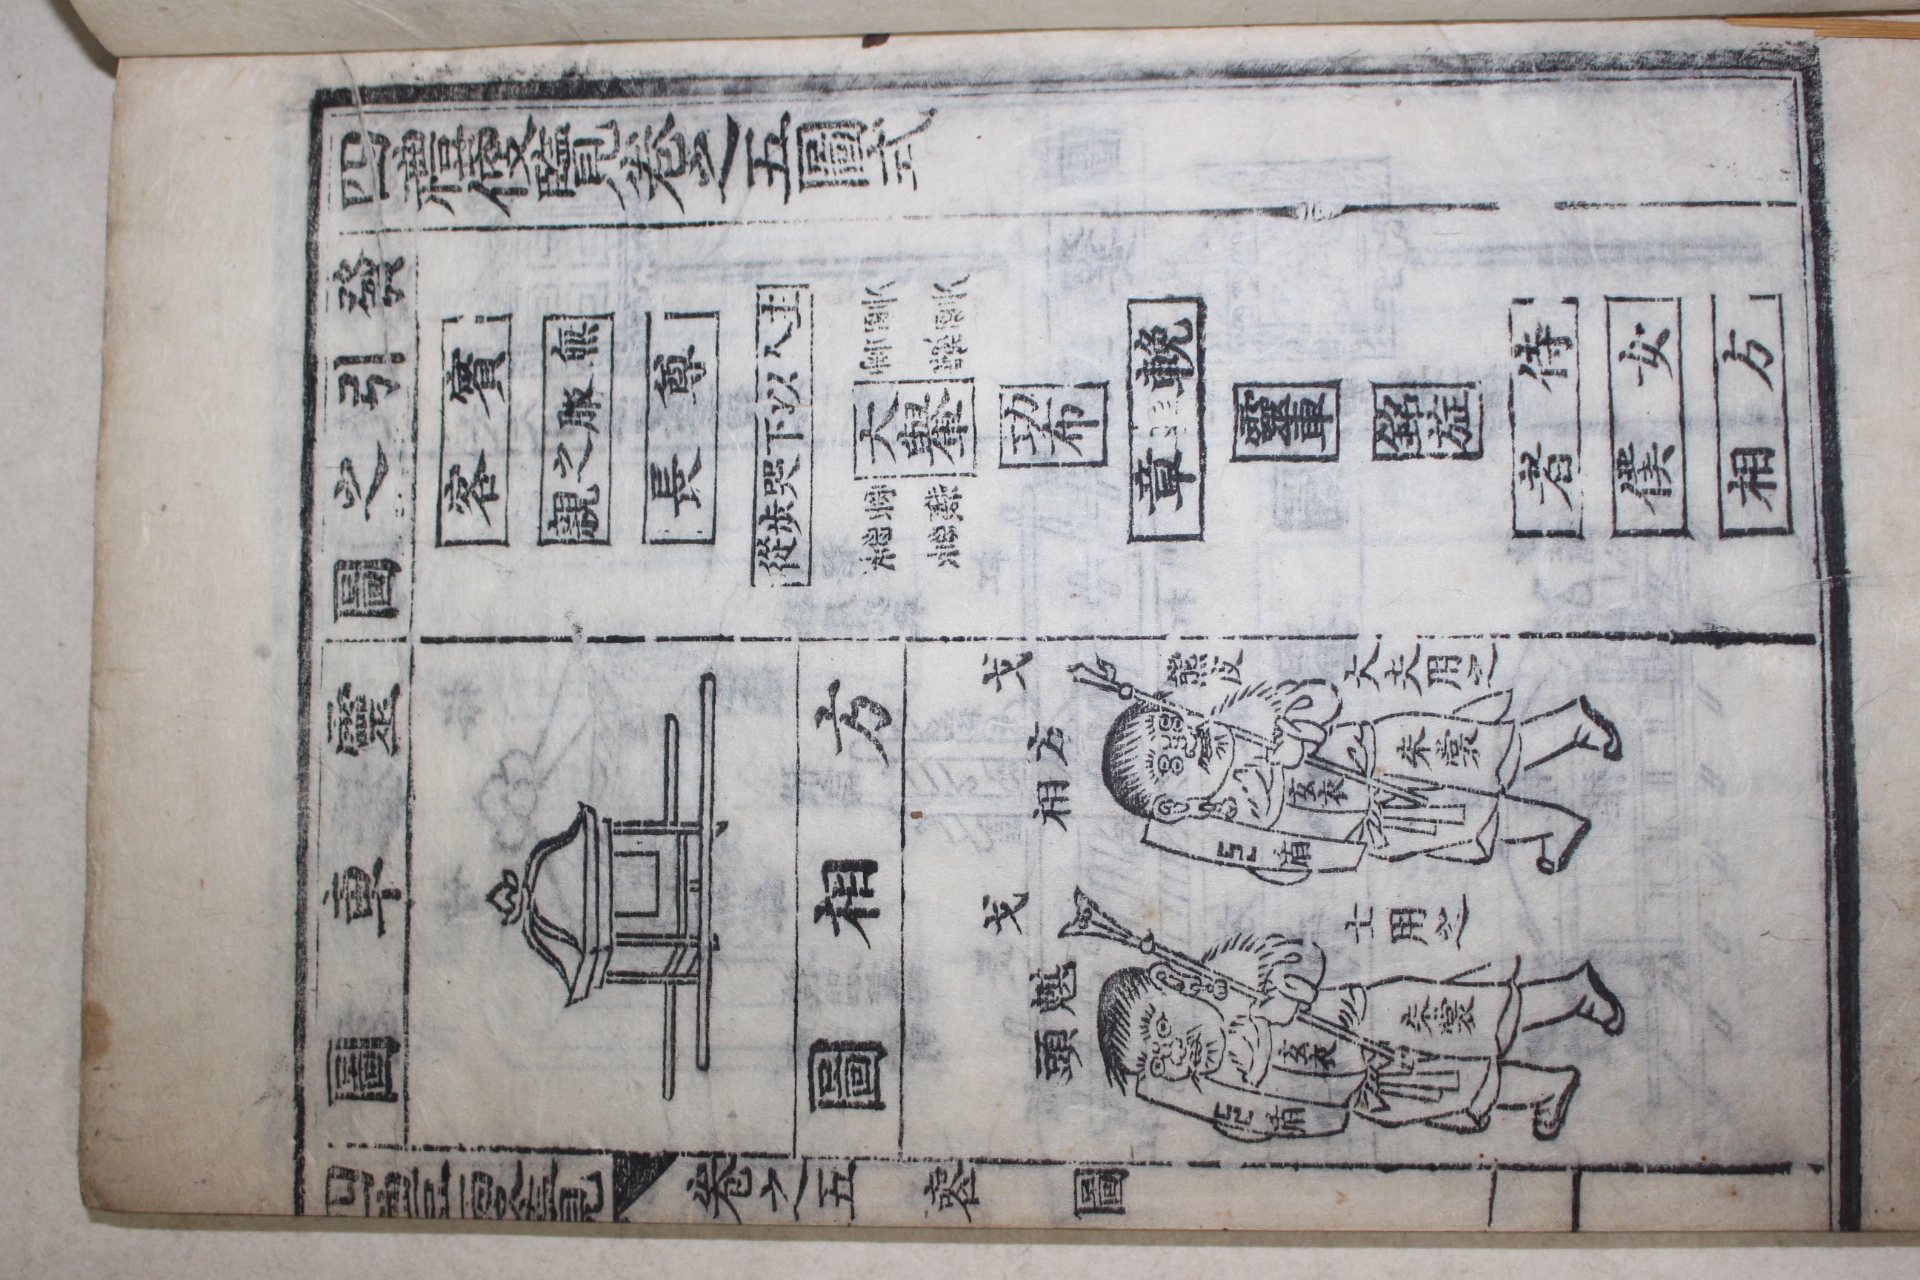 四禮便覽卷之五圖式
發引之圖
賓客
無服之親
尊長
主人以下哭步從
大轝
功布
輓章
靈車
銘旌
侍者
女僕
方相
靈車圖
方相圖
戈
方相
熊皮
盾
玄衣
朱裳
大夫用之
戈
魌頭
盾
玄衣
朱裳
士用之
四禮便覽
卷之五
圖